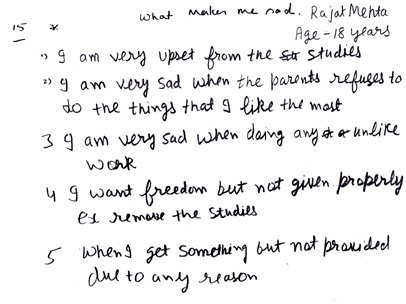 15 * What makes me sad. Rajat Mehta
Age - 18 years
1) I am very upset from the studies
2) I am very sad when the parents refuses to
do the things that I like the most
3 I am very sad when doing any unlike
work
4 I want freedom but not given properly
ex remove the studies
5 when I get something but not provided
due to any reason